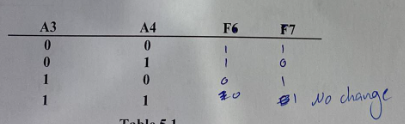 A3 A4 F6 F7
0 0 1 1
0 1 1 0
1 0 0 1
1 1 0 1 No change
Table 5.1